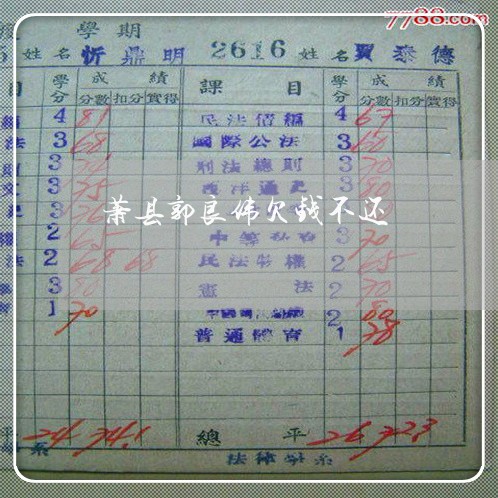 7788.com
學期
姓名 忻鼎明 2616 姓名 賈泰德
目 學分 成績 課目 學分 成績
分數 扣分 實得 分數 扣分 實得
4 81 民法債編 4 67
法 3 68 國際公法 3 60
3 刑法總則 3 70
3 75 西洋通史 3 80
3
萧县郭良伟欠钱不还
2 65 3 70
法 2 68 68 民法物權 2 65
3 80 憲法 2 70
1 70 2 80
普通體育 1 78
平 24 74.1 總平 26 72.3
系 法律學系